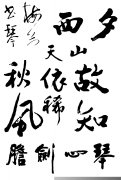 夕故知
西山
天依稀
秋風
琴心劍膽